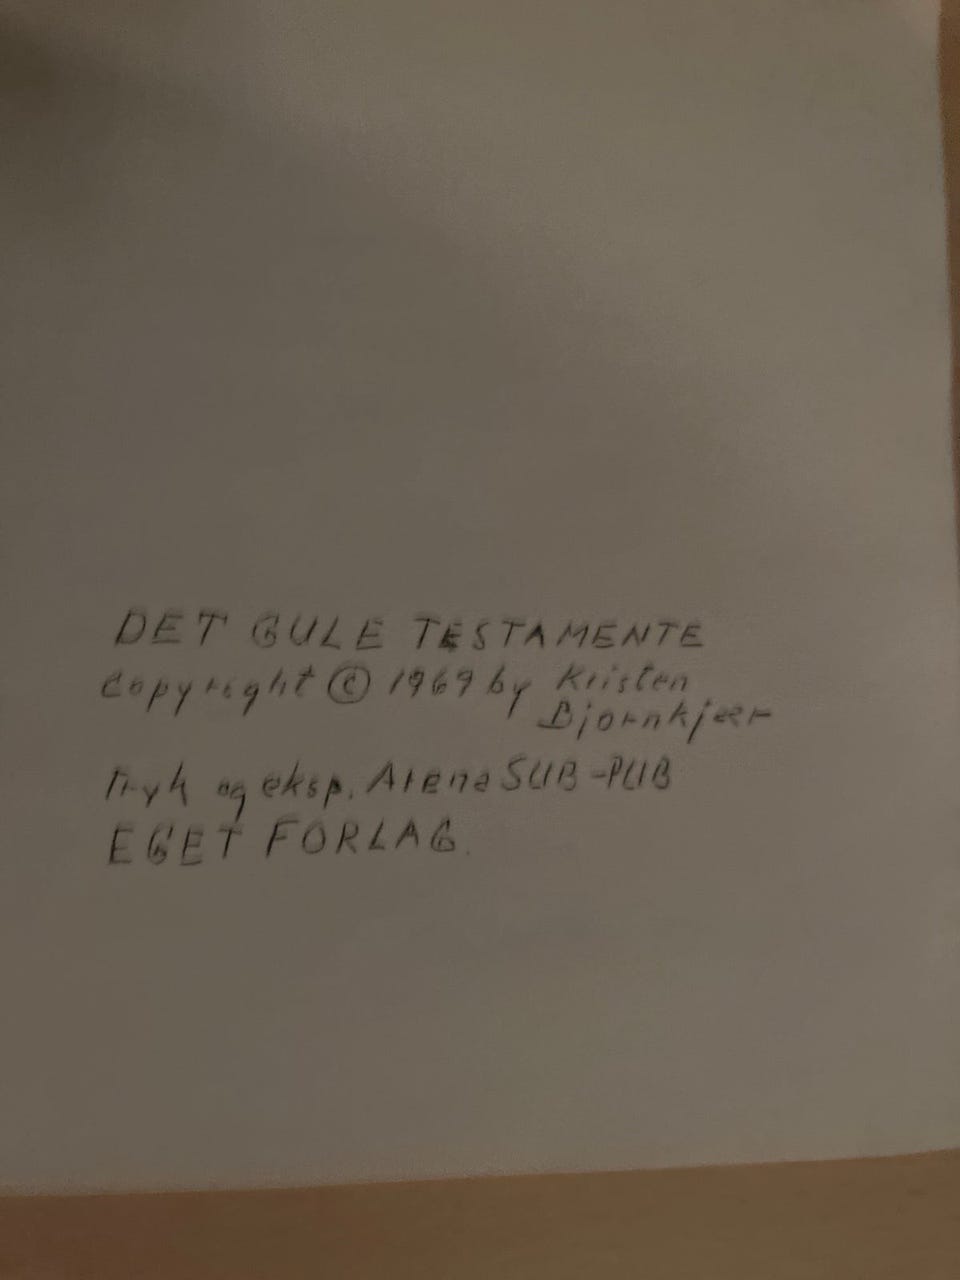 DET GULE TESTAMENTE
copyright © 1969 by Kristen
Bjørnkjær
Tryk og eksp. Arena SUB-PUB
EGET FORLAG.